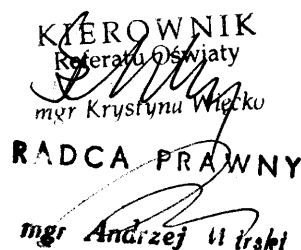 KIEROWNIK
Referatu Oświaty
mgr Krystyna Więcko
RADCA PRAWNY
mgr Andrzej